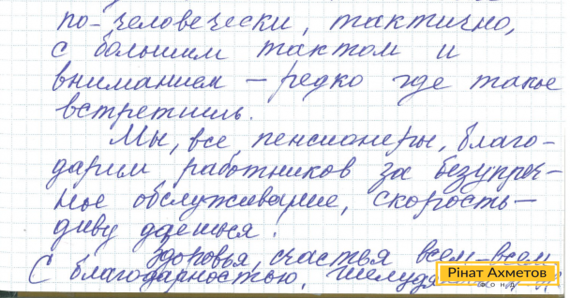 по-человечески, тактично,
с большим тактом и
вниманием – редко где такое
встретишь.
Мы, все, пенсионеры, благо-
дарим работников за безупреч-
ное обслуживание, скорость –
диву даешься!
Здоровья, счастья всем-всем
С благодарностью,
Рінат Ахметов